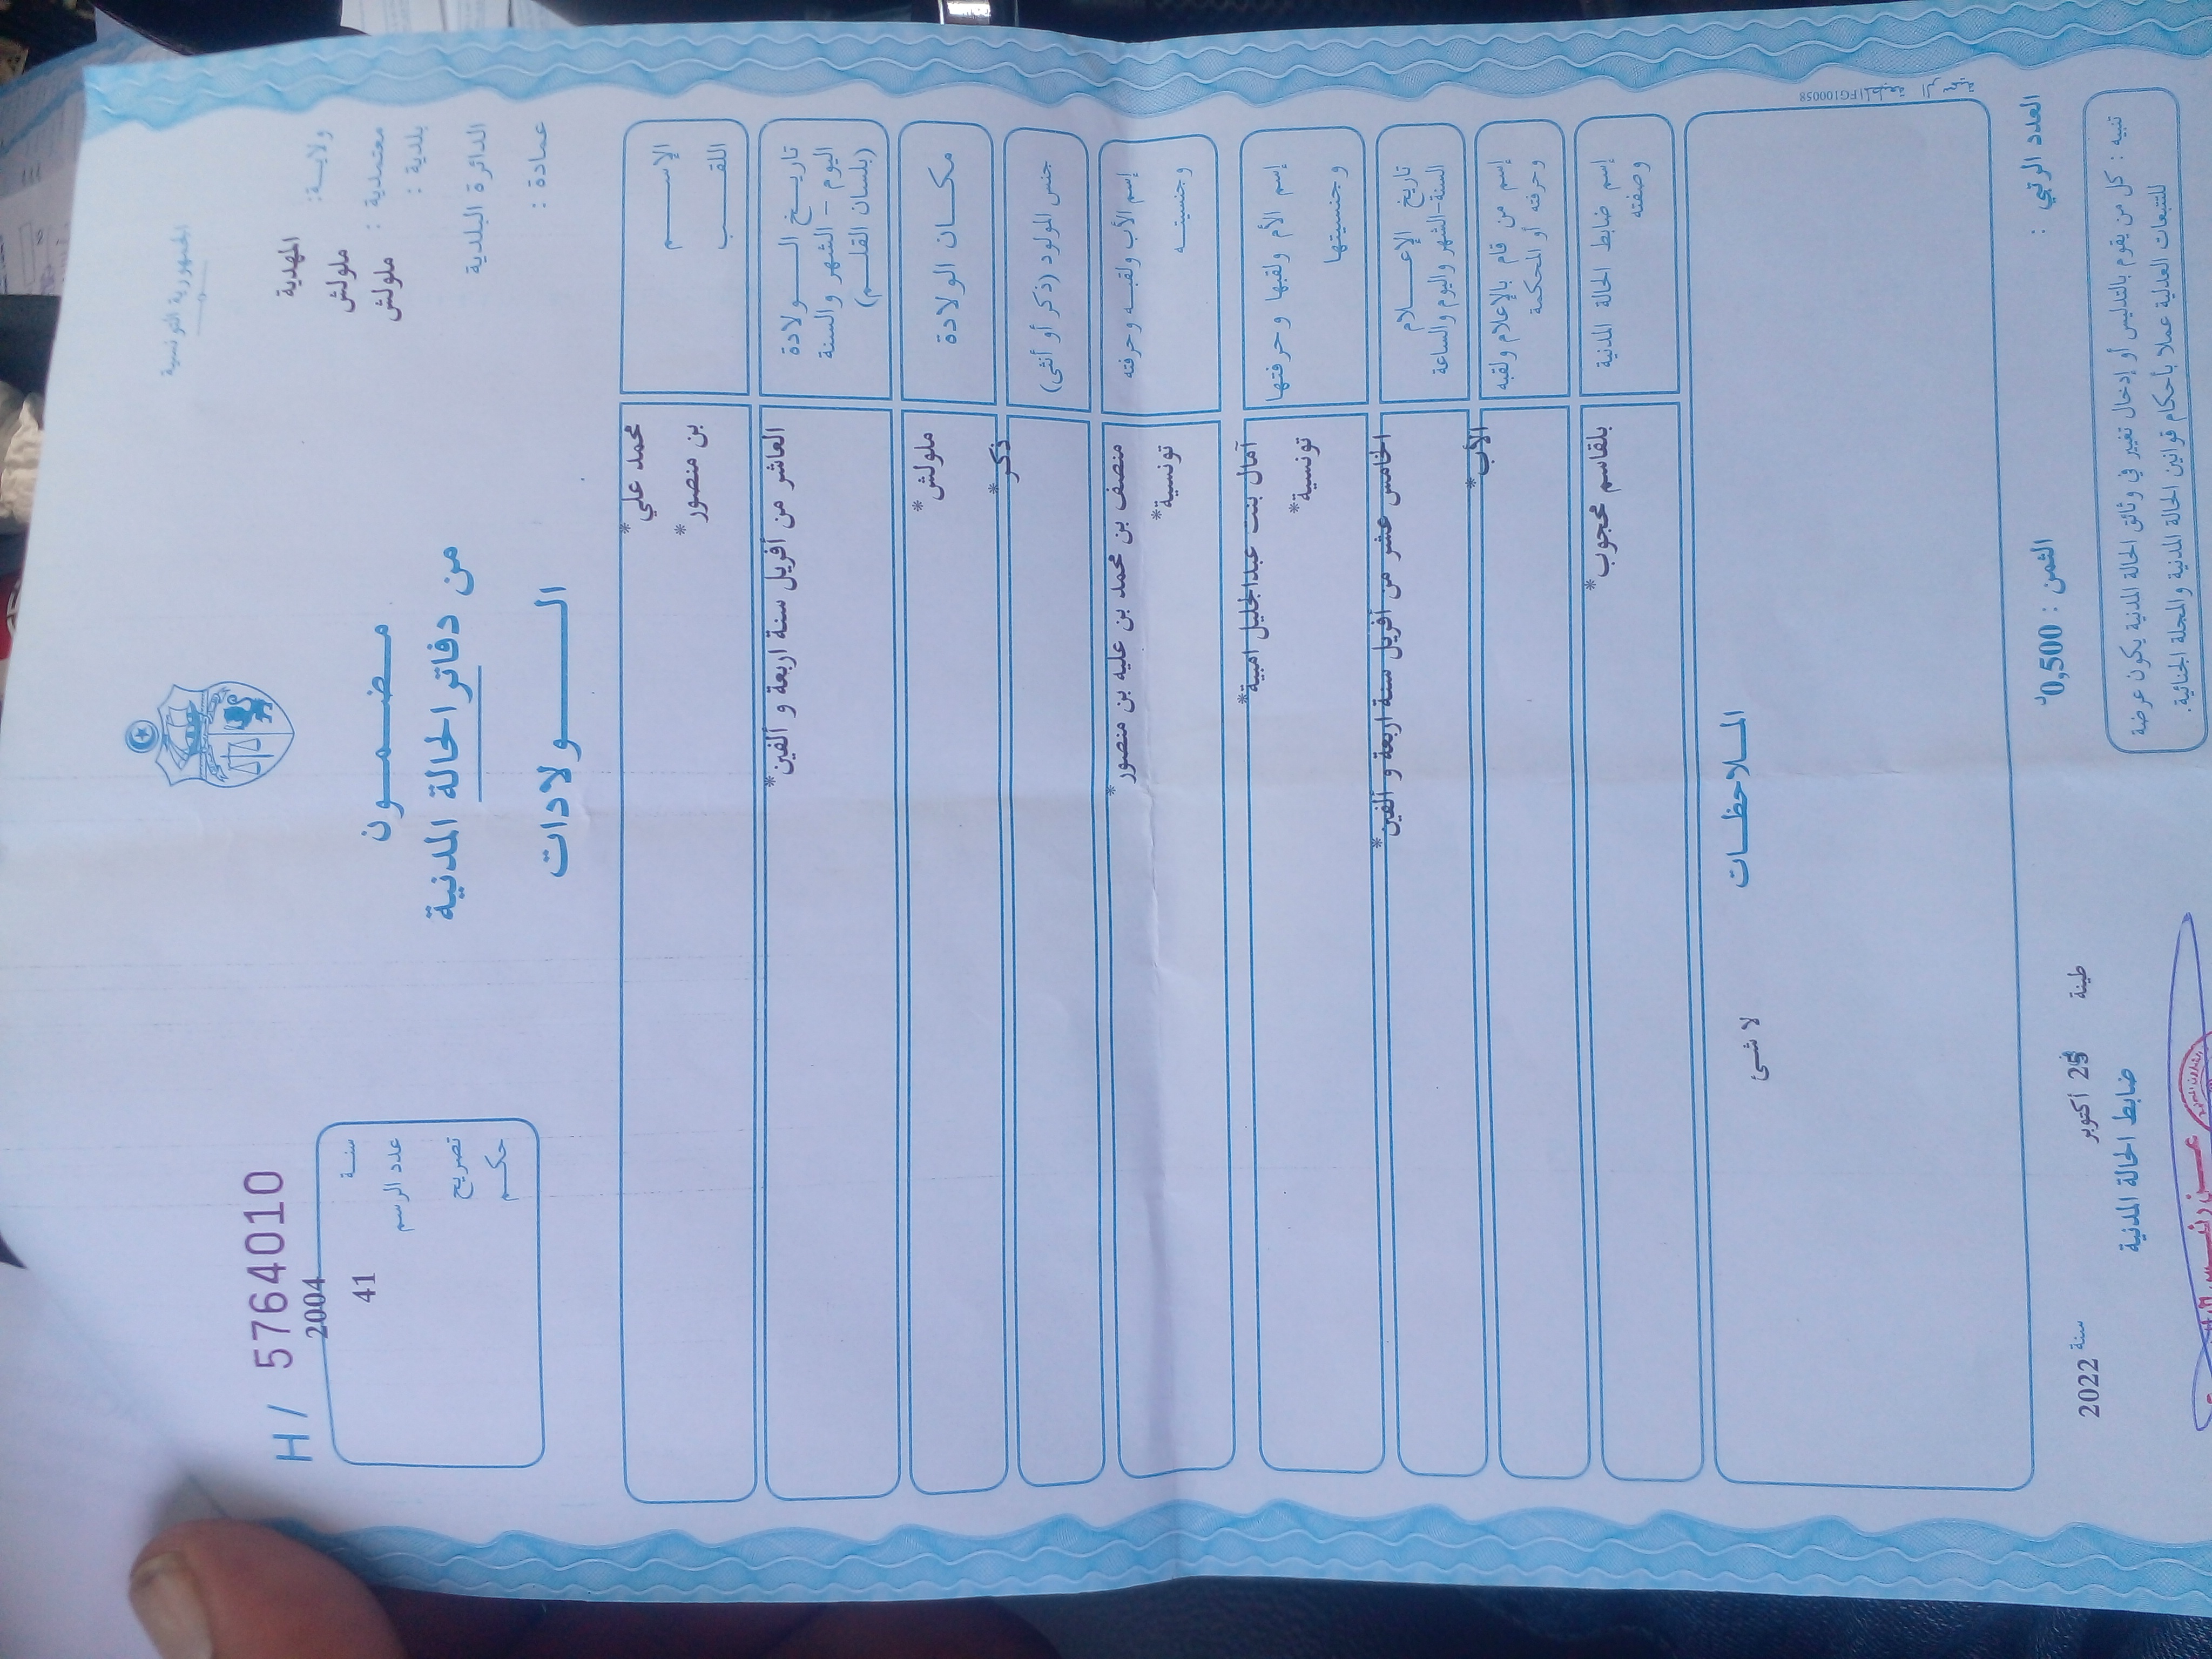 الجمهورية التونسية
ولاية: المهدية
معتمدية : ملولش
بلدية : ملولش
الدائرة البلدية :
عمادة :
مضمون
من دفاتر الحالة المدنية
الولادات
H / 5764010
سنة 2004
عدد الرسم 41
تصريح
حكم
الإسم محمد علي*
اللقب بن منصور*
تاريخ الولادة
اليوم - الشهر والسنة
(بلسان القلم)
العاشر من أفريل سنة اربعة و ألفين*
مكان الولادة ملولش*
جنس المولود (ذكر أو أنثى) ذكر*
إسم الأب ولقبه وحرفته منصف بن محمد بن عليه بن منصور*
وجنسيته تونسية*
إسم الأم ولقبها وحرفتها آمال بنت عبدالجليل امبية*
وجنسيتها تونسية*
تاريخ الإعلام
السنة-الشهر واليوم والساعة
الخامس عشر من أفريل سنة اربعة و ألفين*
إسم من قام بالإعلام ولقبه
وحرفته أو المحكمة
الأب*
إسم ضابط الحالة المدنية
وصفته
بلقاسم محجوب*
الملاحظات
لا شئ
FG100058
العدد الرتبي :
الثمن : 0,500د
طينة في 25 أكتوبر سنة 2022
ضابط الحالة المدنية
تنبيه : كل من يقوم بالتدليس أو إدخال تغيير في وثائق الحالة المدنية يكون عرضة
للتتبعات العدلية عملا بأحكام قوانين الحالة المدنية والمجلة الجنائية.